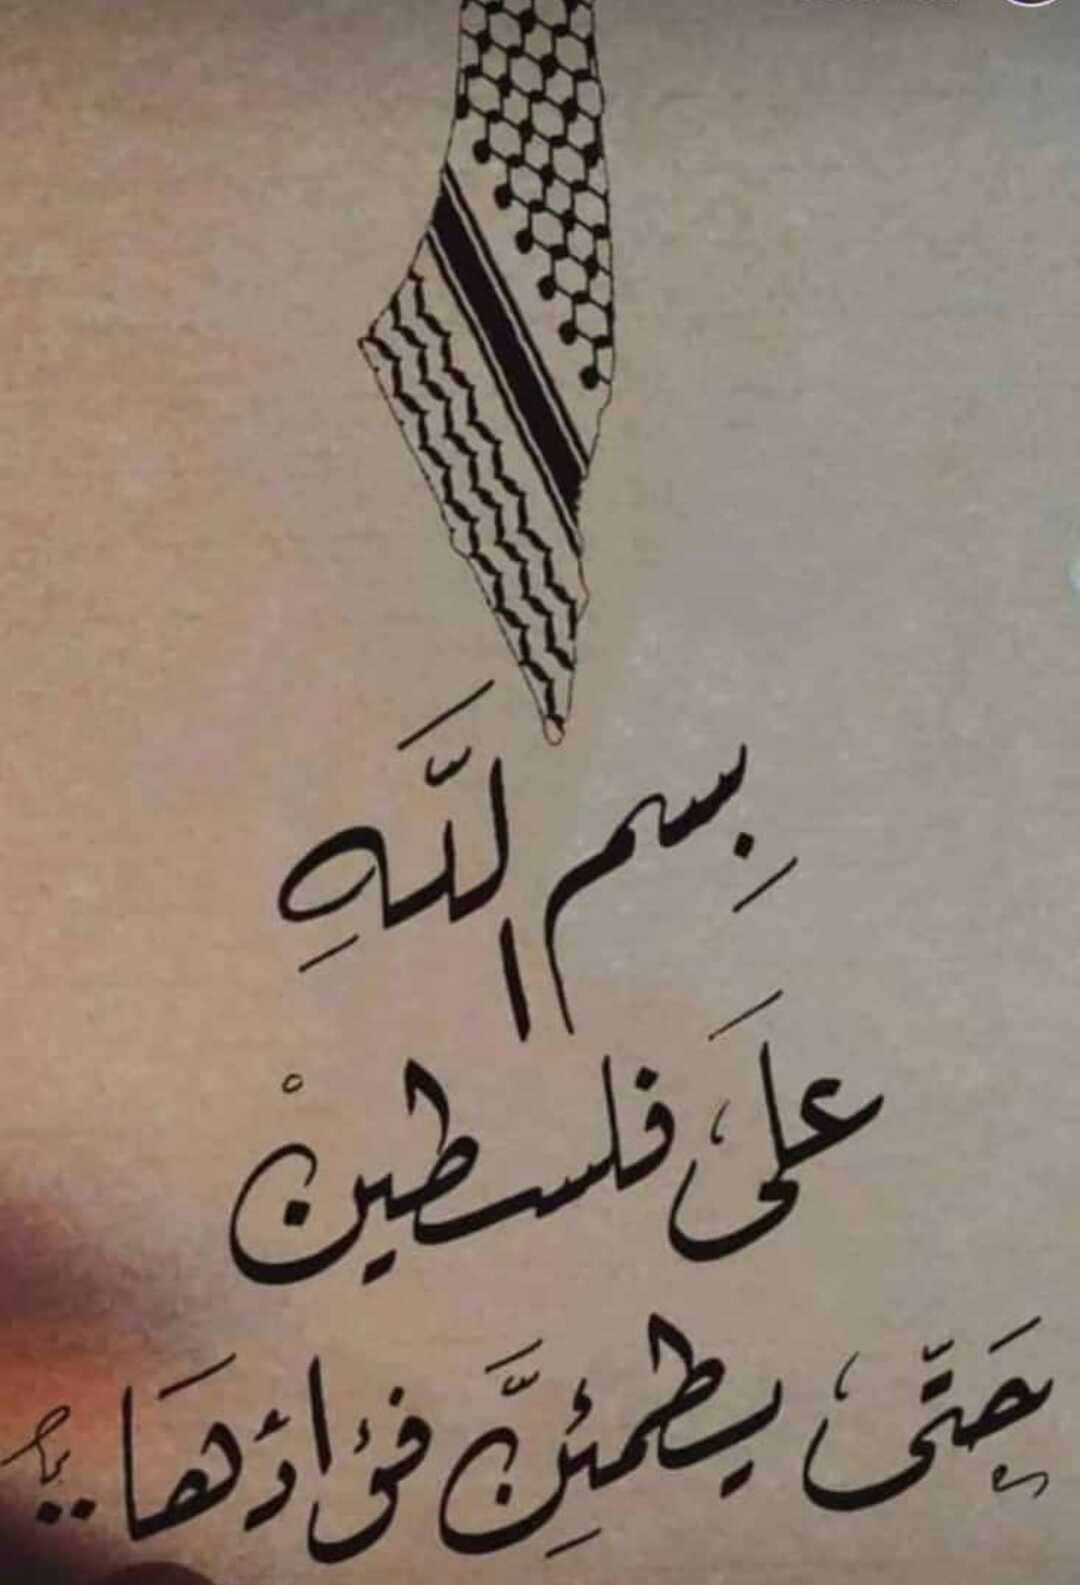 بِسم اللَّهِ
علَى فلسطينْ
حَتّى يطمئِنَّ فؤادُهَا..